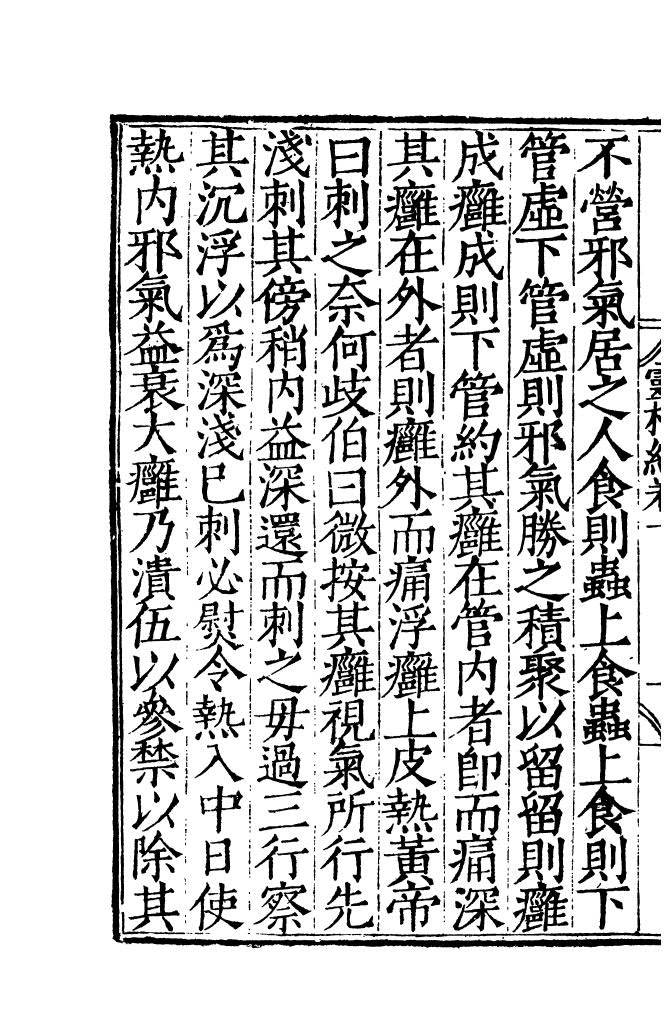 不營邪氣居之人食則蟲上食蟲上食則下
管虛下管虛則邪氣勝之積聚以留留則癰
成癰成則下管約其癰在管內者卽而痛深
其癰在外者則癰外而痛浮癰上皮熱黃帝
曰刺之奈何歧伯曰微按其癰視氣所行先
淺刺其傍稍內益深還而刺之毋過三行察
其沉浮以爲深淺已刺必熨令熱入中日使
熱內邪氣益衰大癰乃潰伍以參禁以除其